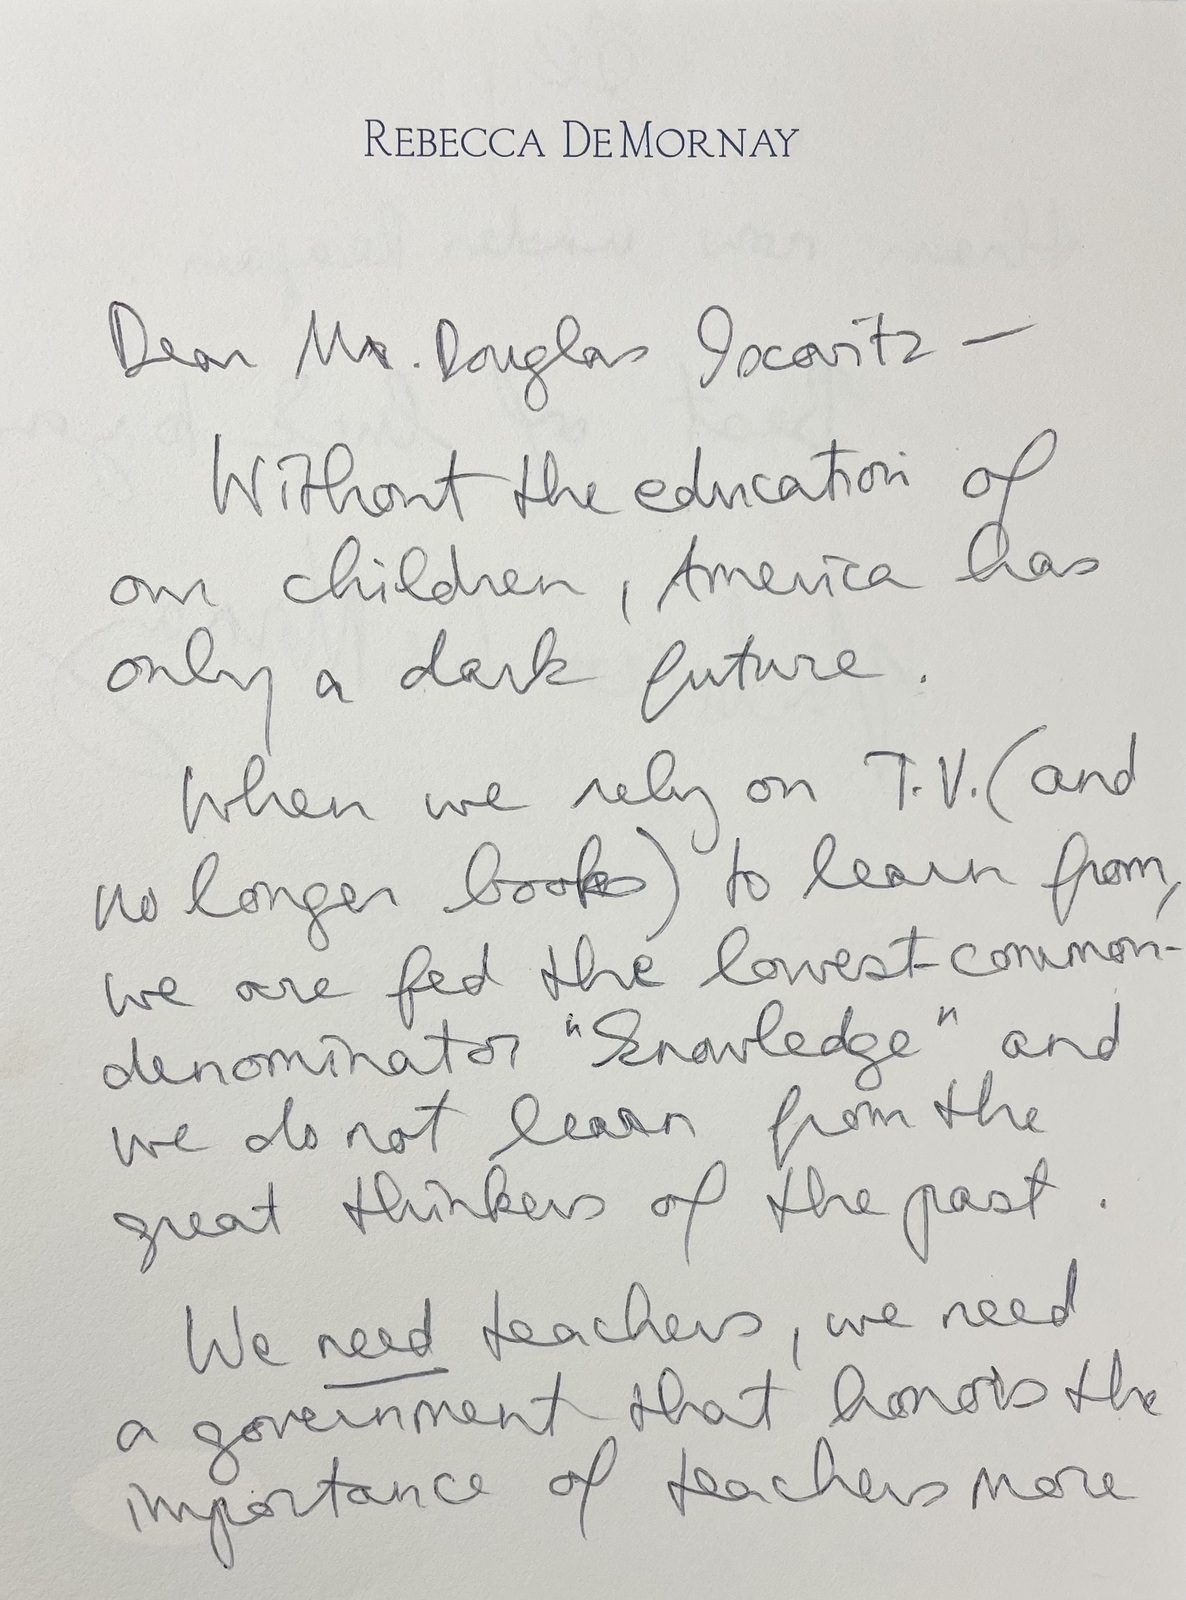 REBECCA DEMORNAY
Dear Mr. Douglas Ixcovitz —
Without the education of
our children, America has
only a dark future.
When we rely on T.V. (and
no longer books) to learn from,
we are fed the lowest-common-
denominator "knowledge" and
we do not learn from the
great thinkers of the past.
We need teachers, we need
a government that honors the
importance of teachers more